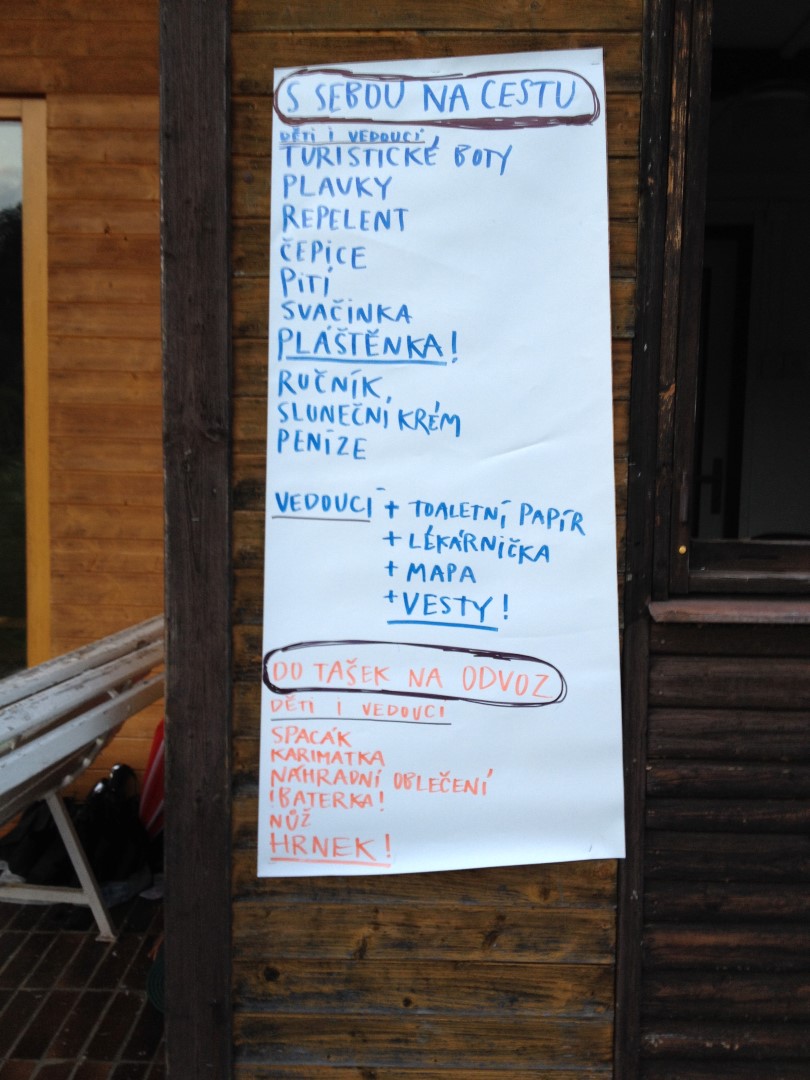 S SEBOU NA CESTU
DĚTI I VEDOUCÍ
TURISTICKÉ BOTY
PLAVKY
REPELENT
ČEPICE
PITÍ
SVAČINKA
PLÁŠTĚNKA!
RUČNÍK,
SLUNEČNÍ KRÉM
PENÍZE
VEDOUCÍ + TOALETNÍ PAPÍR
+ LÉKÁRNIČKA
+ MAPA
+ VESTY!
DO TAŠEK NA ODVOZ
DĚTI I VEDOUCÍ
SPACÁK
KARIMATKA
NÁHRADNÍ OBLEČENÍ
!BATERKA!
NŮŽ
HRNEK!